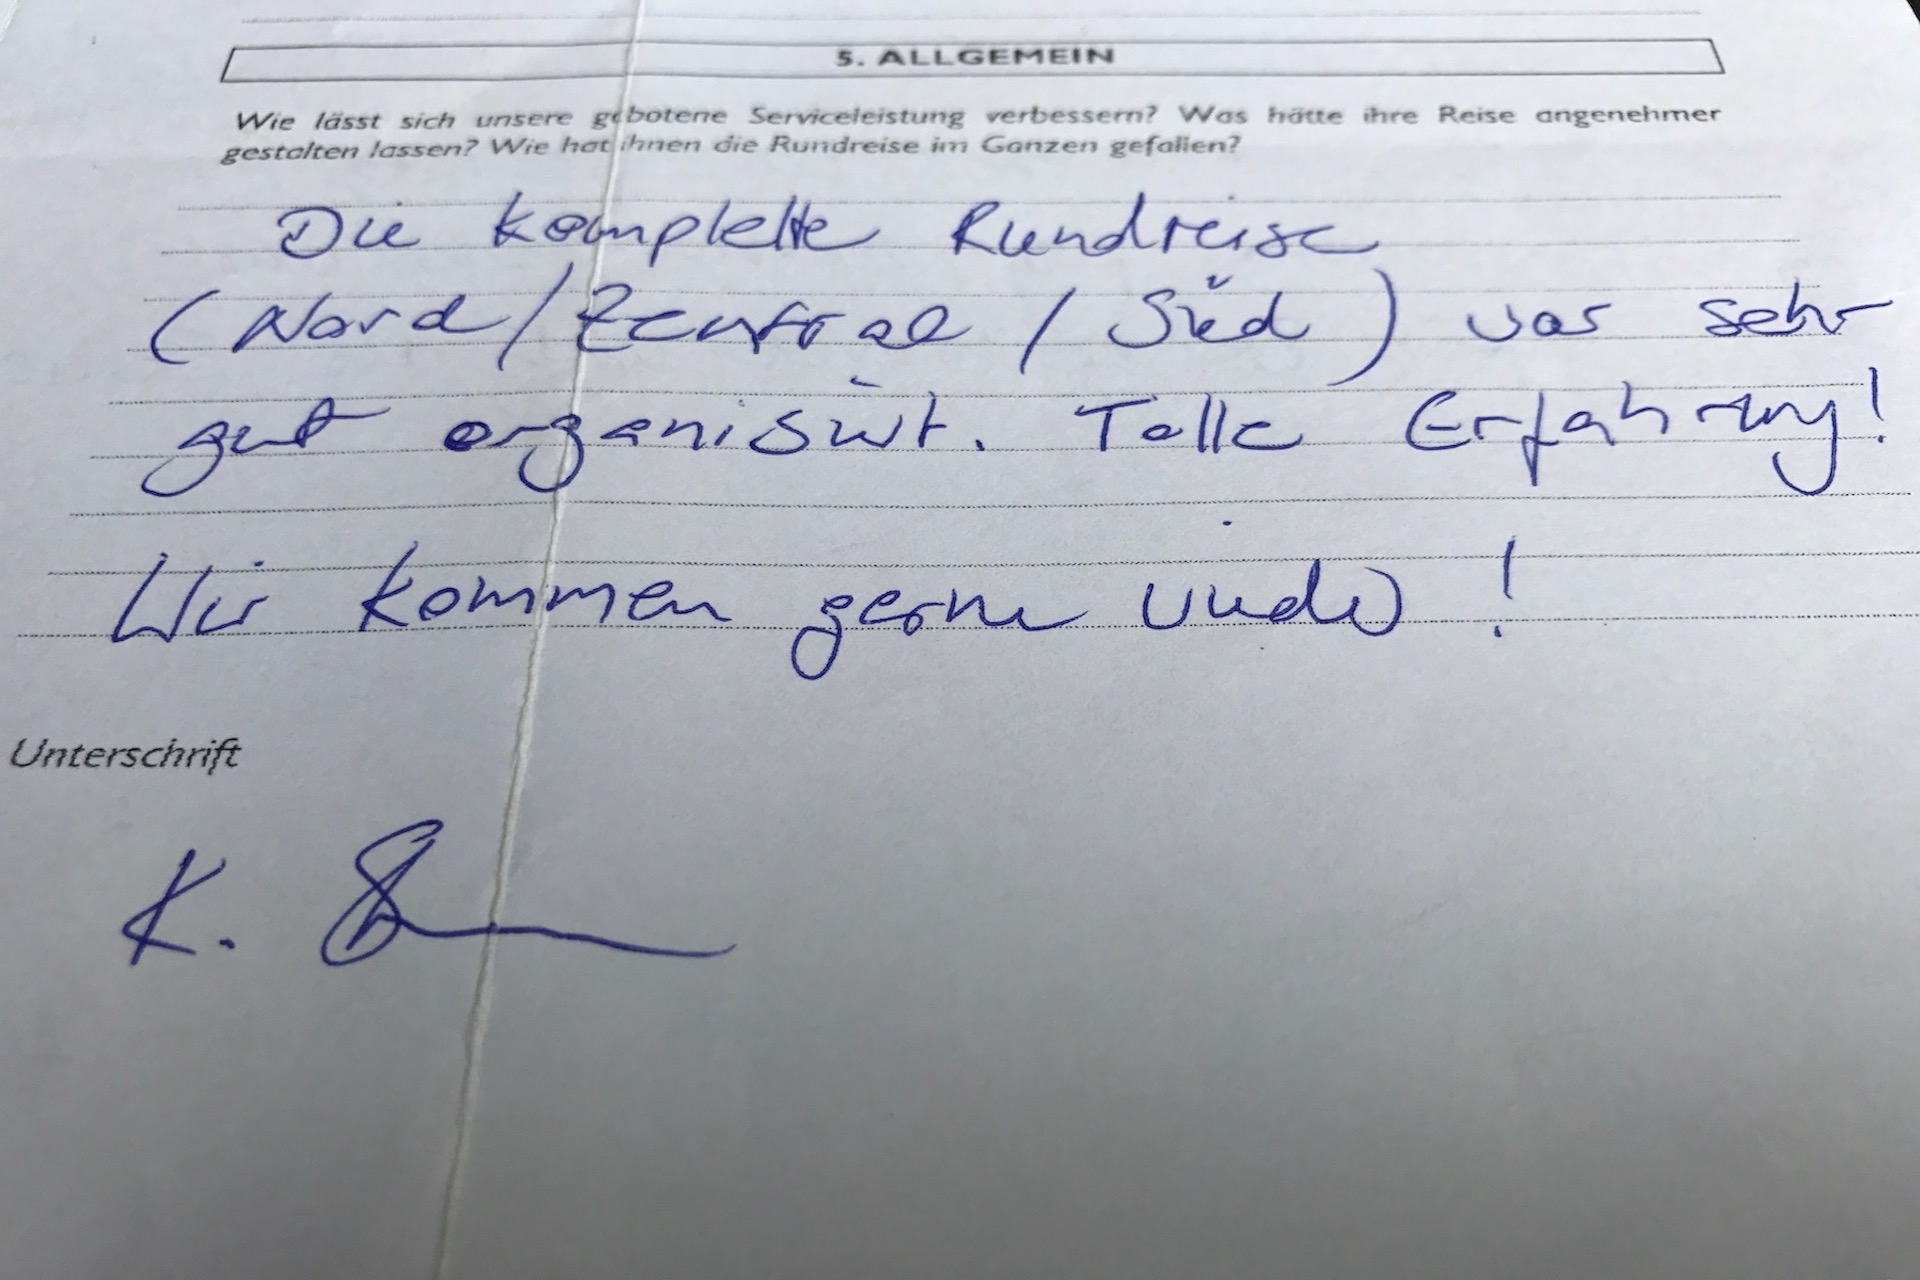 5. ALLGEMEIN
Wie lässt sich unsere gebotene Serviceleistung verbessern? Was hätte ihre Reise angenehmer
gestalten lassen? Wie hat ihnen die Rundreise im Ganzen gefallen?
Die komplette Rundreise
(Nord/Zentral/Süd) war sehr
gut organisiert. Tolle Erfahrung!
Wir kommen gerne wieder!
Unterschrift
K.